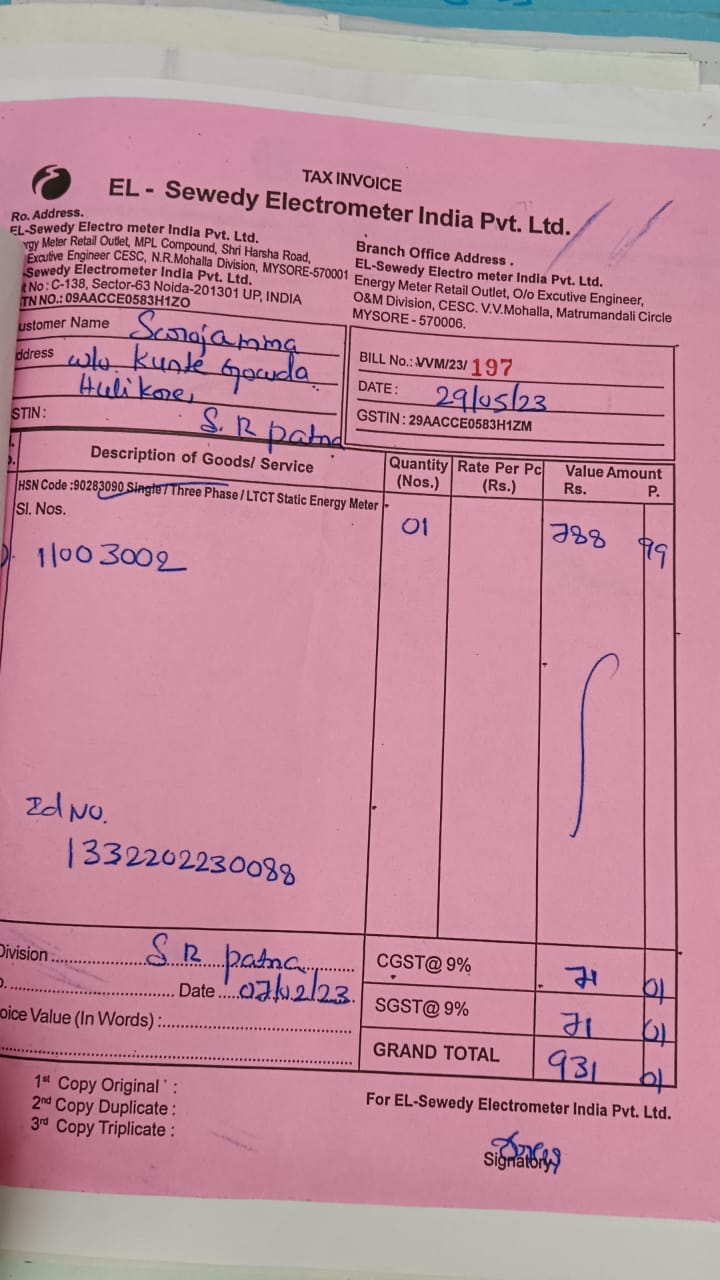 TAX INVOICE
EL - Sewedy Electrometer India Pvt. Ltd.
Ro. Address.
EL-Sewedy Electro meter India Pvt. Ltd.
rgy Meter Retail Outlet, MPL Compound, Shri Harsha Road,
Excutive Engineer CESC, N.R.Mohalla Division, MYSORE-570001
Sewedy Electrometer India Pvt. Ltd.
t No : C-138, Sector-63 Noida-201301 UP, INDIA
TN NO.: 09AACCE0583H1ZO
Branch Office Address .
EL-Sewedy Electro meter India Pvt. Ltd.
Energy Meter Retail Outlet, O/o Excutive Engineer,
O&M Division, CESC. V.V.Mohalla, Matrumandali Circle
MYSORE - 570006.
ustomer Name Sarojamma
ddress w/o. Kunte Gowda
Hulikere,
STIN : S. R patna
BILL No.: VVM/23/ 197
DATE : 29/05/23
GSTIN : 29AACCE0583H1ZM
Description of Goods/ Service
Quantity (Nos.)
Rate Per Pc (Rs.)
Value Amount
Rs. P.
HSN Code :90283090 Single / Three Phase / LTCT Static Energy Meter
Sl. Nos.
01 788 99
11003002
Id NO.
1332202230088
Division S R patna
CGST@ 9% 71 01
Date 07/02/23
SGST@ 9% 71 01
oice Value (In Words) :
GRAND TOTAL 931 01
1st Copy Original :
2nd Copy Duplicate :
3rd Copy Triplicate :
For EL-Sewedy Electrometer India Pvt. Ltd.
Signatory